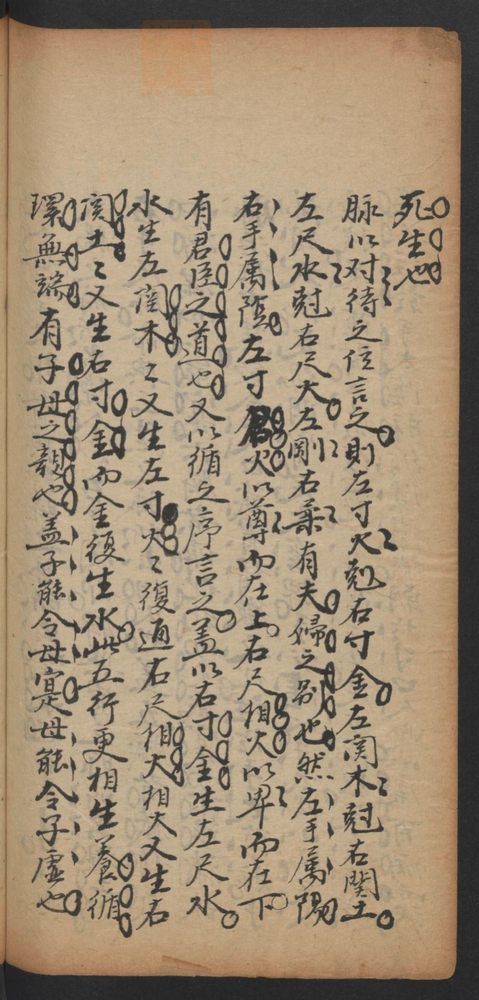 死生也
脉以对待之位言之則左寸火尅右寸金左関木尅右関土
左尺水尅右尺火左剛右柔有夫婦之别也然左手属陽
右手属陰左寸君火以尊而在上右尺相火以卑而在下
有君臣之道也又以循之序言之盖以右寸金生左尺水
水生左関木〻又生左寸火〻復通右尺相火相火又生右
関土〻又生右寸金而金復生水此五行更相生養循
環無端有子母之親也盖子能令母寔母能令子虚也